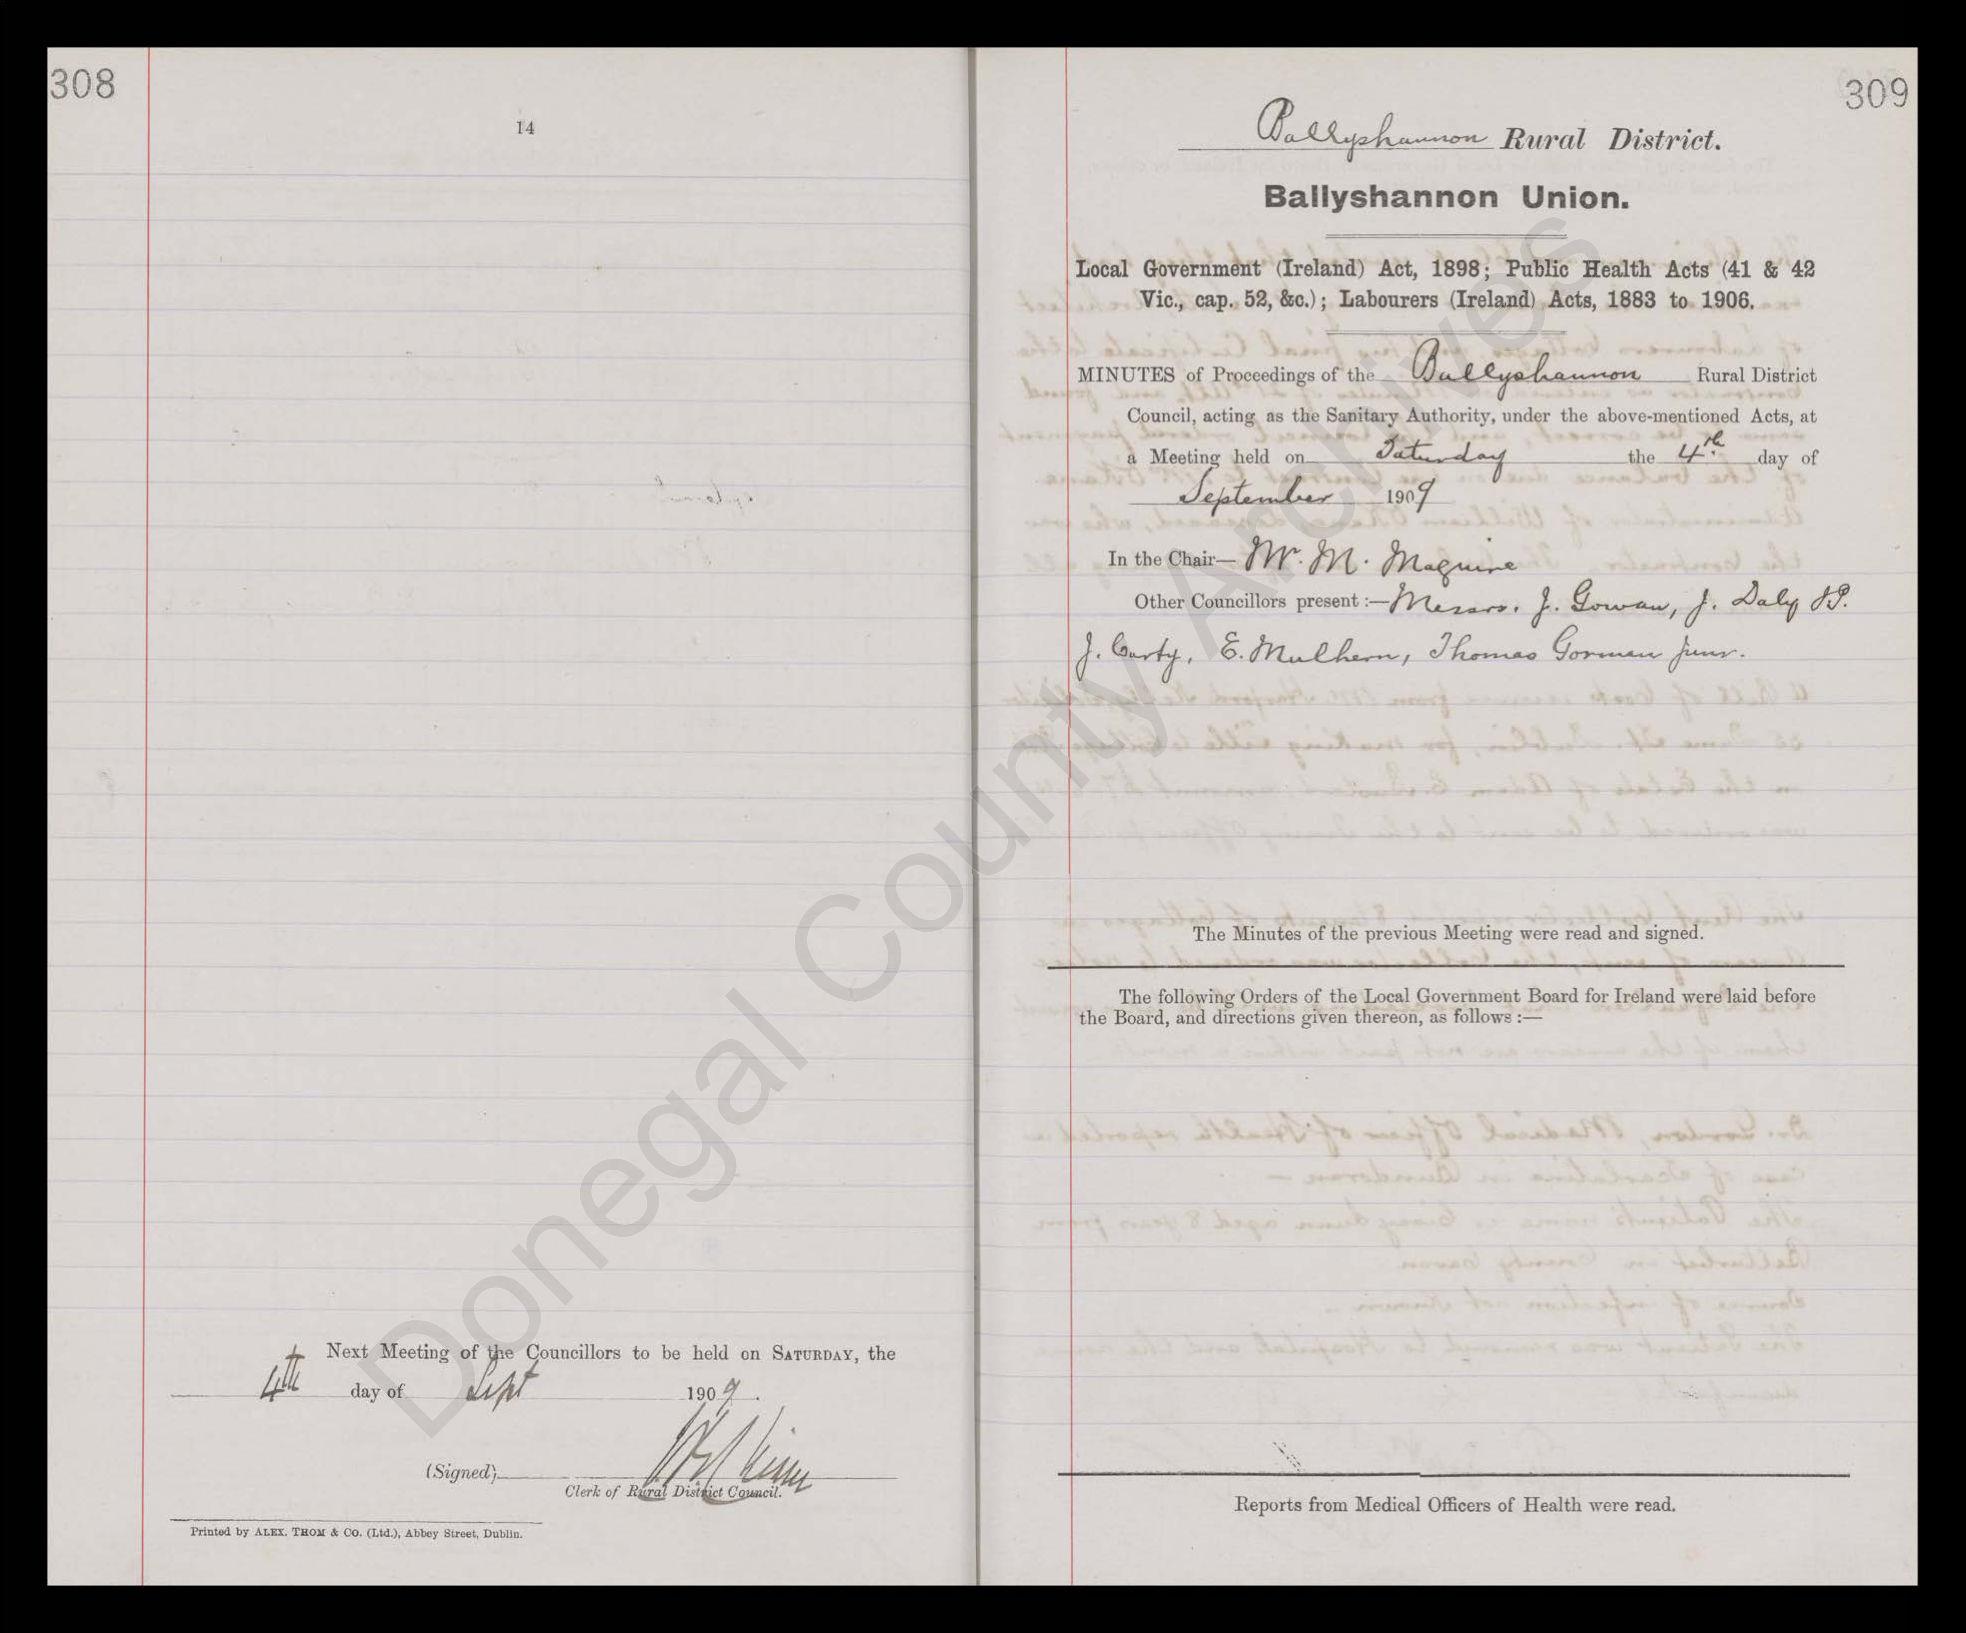 308
14
Next Meeting of the Councillors to be held on SATURDAY, the
4th day of Sept 1909.
(Signed)
Clerk of Rural District Council.
Printed by ALEX. THOM & CO. (Ltd.), Abbey Street, Dublin.
309
Ballyshannon Rural District.
Ballyshannon Union.
Local Government (Ireland) Act, 1898; Public Health Acts (41 & 42
Vic., cap. 52, &c.); Labourers (Ireland) Acts, 1883 to 1906.
MINUTES of Proceedings of the Ballyshannon Rural District
Council, acting as the Sanitary Authority, under the above-mentioned Acts, at
a Meeting held on Saturday the 4th day of
September 1909
In the Chair— Mr. M. Maguire
Other Councillors present :— Messrs. J. Gowan, J. Daly J.P.
J. Carty, E. Mulhern, Thomas Gorman Junr.
The Minutes of the previous Meeting were read and signed.
The following Orders of the Local Government Board for Ireland were laid before
the Board, and directions given thereon, as follows :—
Reports from Medical Officers of Health were read.
Donegal County Archives